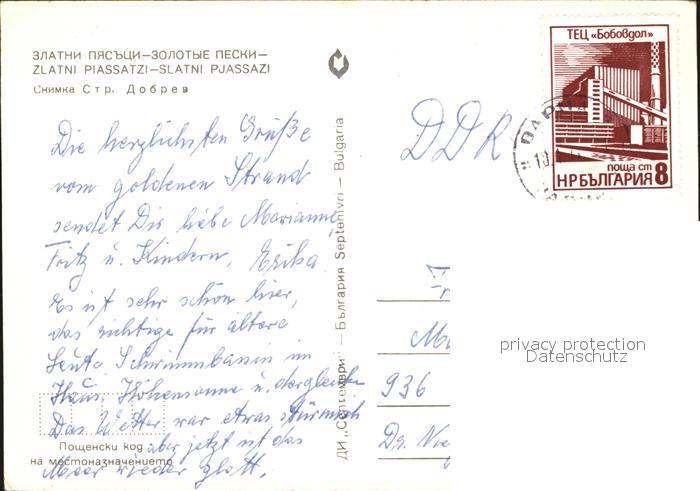 ЗЛАТНИ ПЯСЪЦИ—ЗОЛОТЫЕ ПЕСКИ—
ZLATNI PIASSATZI—SLATNI PJASSAZI
Снимка Стр. Добрев
Die herzlichsten Grüße
vom goldenen Strand
sendet Dir liebe Marianne,
Fritz u. Kindern, Erika.
Es ist sehr schön hier,
das richtige für ältere
Leute. Schwimmbassin im
Haus, Höhensonne u. dergleichen
Das Wetter war etwas stürmisch
aber jetzt ist das
Meer wieder glatt.
Пощенски код
на местоназначението
ДИ „Септември" — България Septemvri — Bulgaria
ТЕЦ «Бобовдол»
поща ст 8
НРБЪЛГАРИЯ
ВАРНА
10.
DDR
936
privacy protection
Datenschutz